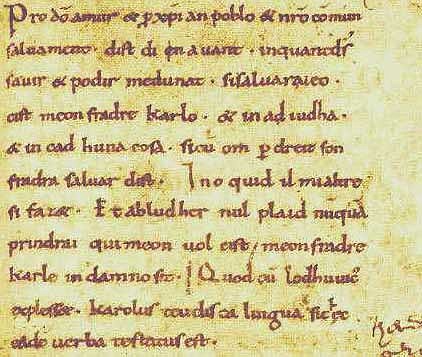 Pro dō amur & p xp̄ian poblo & nr̄o cōmun
saluament. dist di en auant. inquantdſ
sauir & podir medunat. sisaluaraieo.
cist meon fradre karlo. & in ad iudha.
& in cad huna cosa. sicū om p dreit son
fradra saluar dist. Ino quid il mialtre
si faz&. Et abludher nul plaid nūquā
prindrai qui meon uol cist meonfradre
karle in damno sit. Quod cū lodhuuic
explesset. karolus teudisca lingua sic
eadē uerba testatus est.